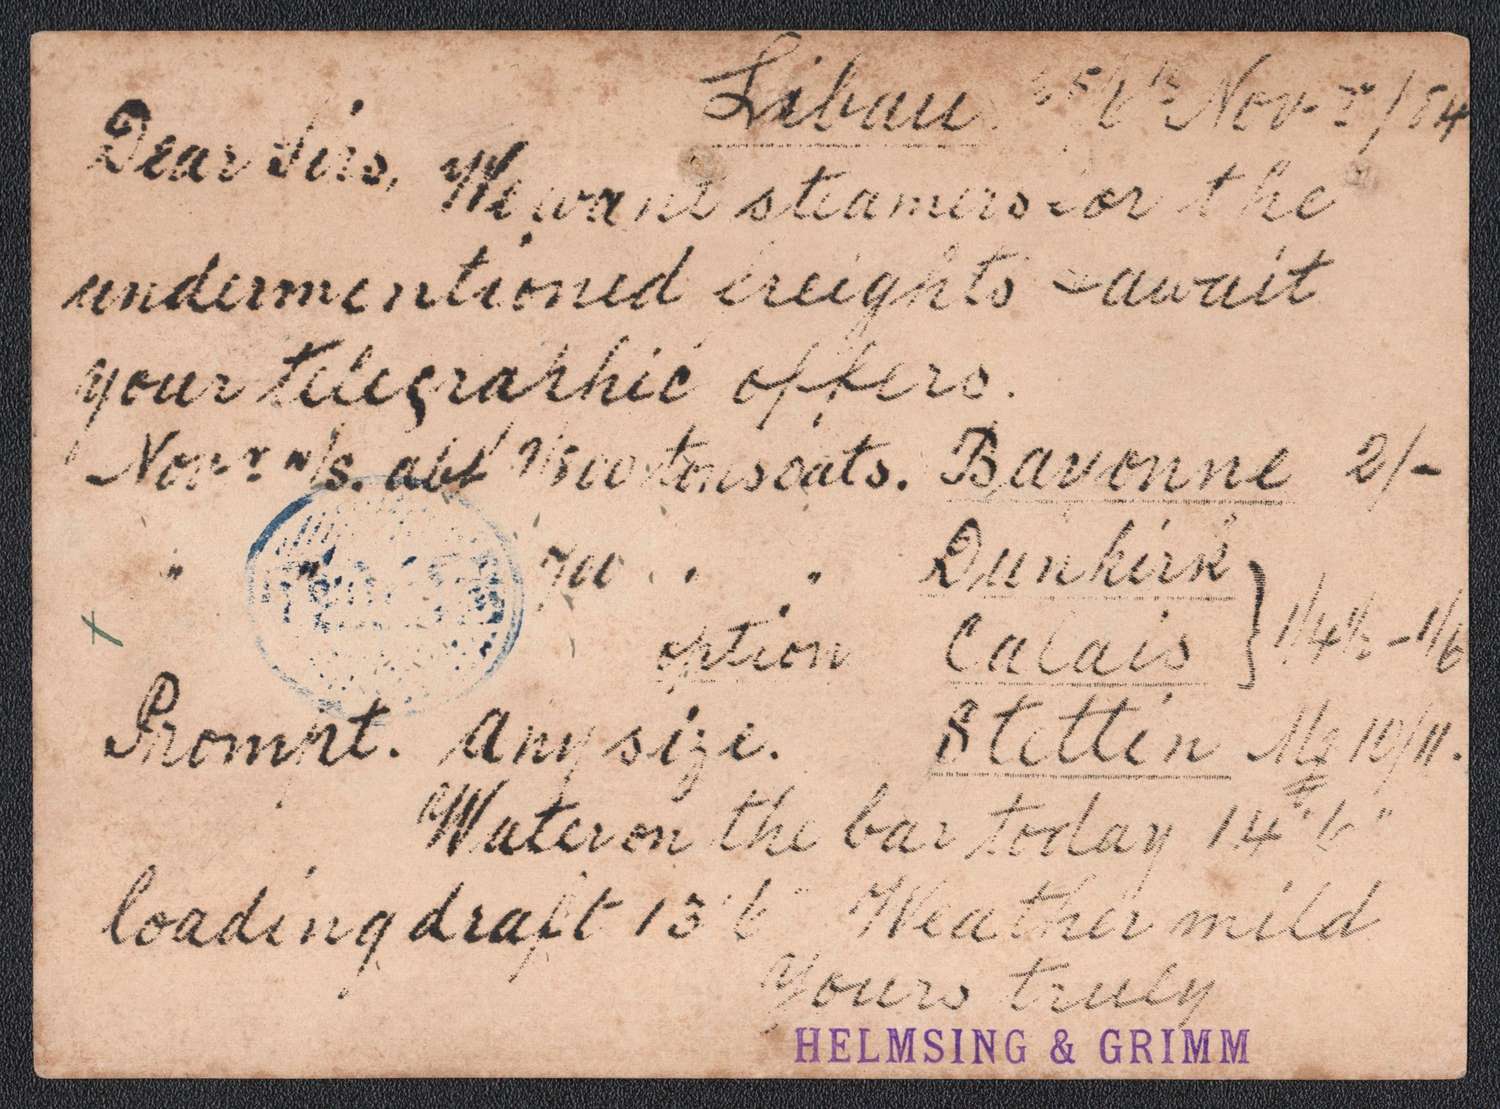 Libau Novr/84
Dear Sirs, We want steamers for the
undermentioned freights & await
your telegraphic offers.
Novr n/s. abt tons oats. Bayonne 2/-
" " 700 " " Dunkirk
option Calais } 1/4½ - 1/6
Prompt. Any size. Stettin Mk 10/11.
Water on the bar today 14' 6"
loading draft 13' 6" Weather mild
Yours truly
HELMSING & GRIMM